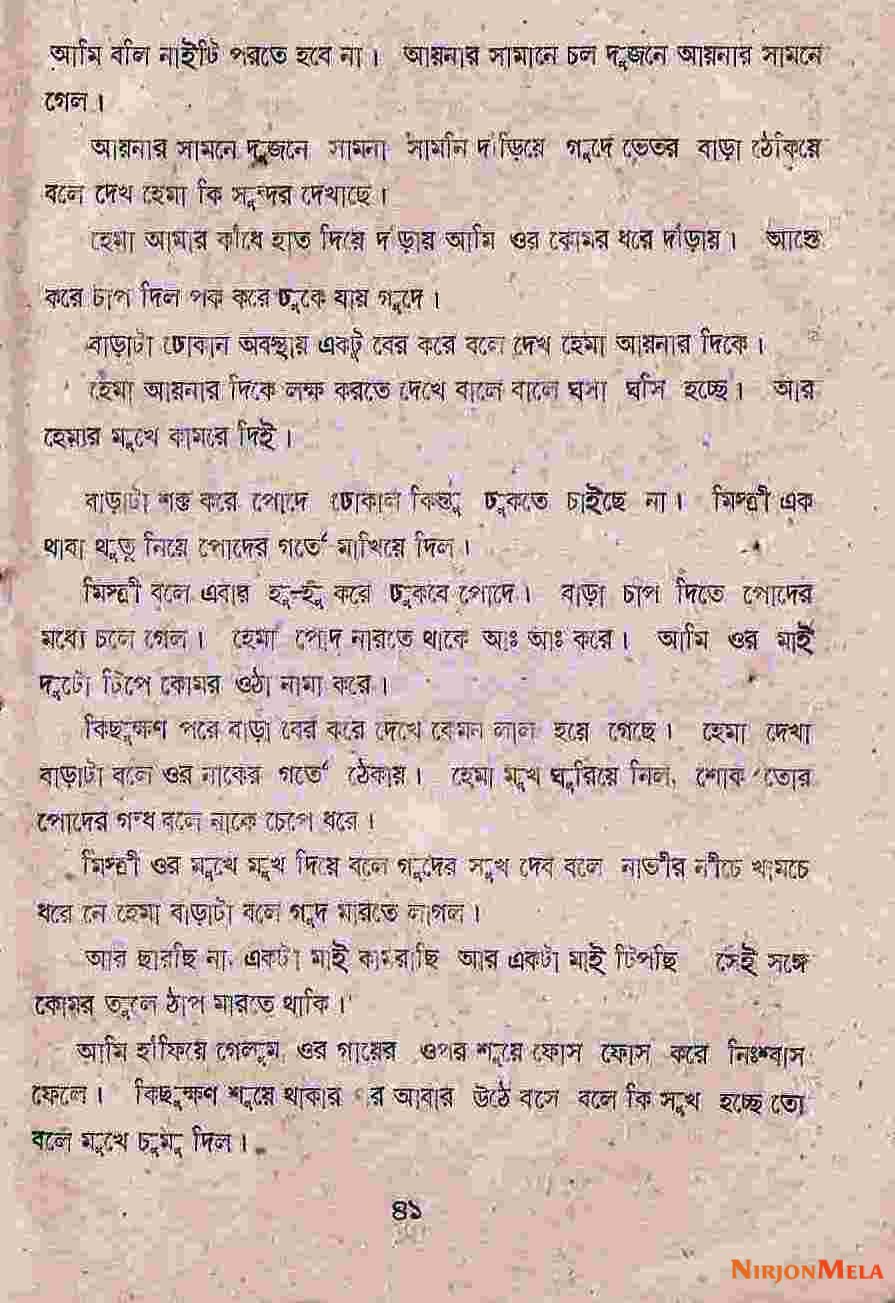 আমি বলি নাইটি পরতে হবে না। আয়নার সামানে চল দুজনে আয়নার সামনে
গেল।
আয়নার সামনে দুজনে সামনা সামনি দাঁড়িয়ে গুদে ভেতর বাড়া ঠেকিয়ে
বলে দেখ হেমা কি সুন্দর দেখাছে।
হেমা আমার কাঁধে হাত দিয়ে দাঁড়ায় আমি ওর কোমর ধরে দাঁড়ায়। আস্তে
করে চাপ দিল পক করে ঢুকে যায় গুদে।
বাড়াটা ঢোকান অবস্থায় একটু বের করে বলে দেখ হেমা আয়নার দিকে।
হেমা আয়নার দিকে লক্ষ করতে দেখে বালে বালে ঘসা ঘসি হচ্ছে। আর
হেমার মুখে কামরে দিই।
বাড়াটা শক্ত করে পোদে ঢোকাল কিন্তু ঢুকতে চাইছে না। মিস্ত্রী এক
থাবা থুতু নিয়ে পোদের গর্তে মাখিয়ে দিল।
মিস্ত্রী বলে এবার হু-হু করে ঢুকবে পোদে। বাড়া চাপ দিতে পোদের
মধ্যে চলে গেল। হেমা পোদ নারতে থাকে আঃ আঃ করে। আমি ওর মাই
দুটো টিপে কোমর ওঠা নামা করে।
কিছুক্ষণ পরে বাড়া বের করে দেখে কেমন লাল হয়ে গেছে। হেমা দেখা
বাড়াটা বলে ওর নাকের গর্তে ঠেকায়। হেমা মুখ ঘুরিয়ে নিল, শোক তোর
পোদের গন্ধ বলে নাকে চেপে ধরে।
মিস্ত্রী ওর মুখে মুখ দিয়ে বলে গুদের সুখ দেব বলে নাভীর নীচে খামচে
ধরে নে হেমা বাড়াটা বলে গুদ মারতে লাগল।
আর ছারছি না, একটা মাই কামরাছি আর একটা মাই টিপছি সেই সঙ্গে
কোমর তুলে ঠাপ মারতে থাকি।
আমি হাঁফিয়ে গেলুম, ওর গায়ের ওপর শুয়ে ফোস ফোস করে নিঃশ্বাস
ফেলে। কিছুক্ষণ শুয়ে থাকার র আবার উঠে বসে বলে কি সুখ হচ্ছে তো
বলে মুখে চুমু দিল।
৪১
NIRJONMELA